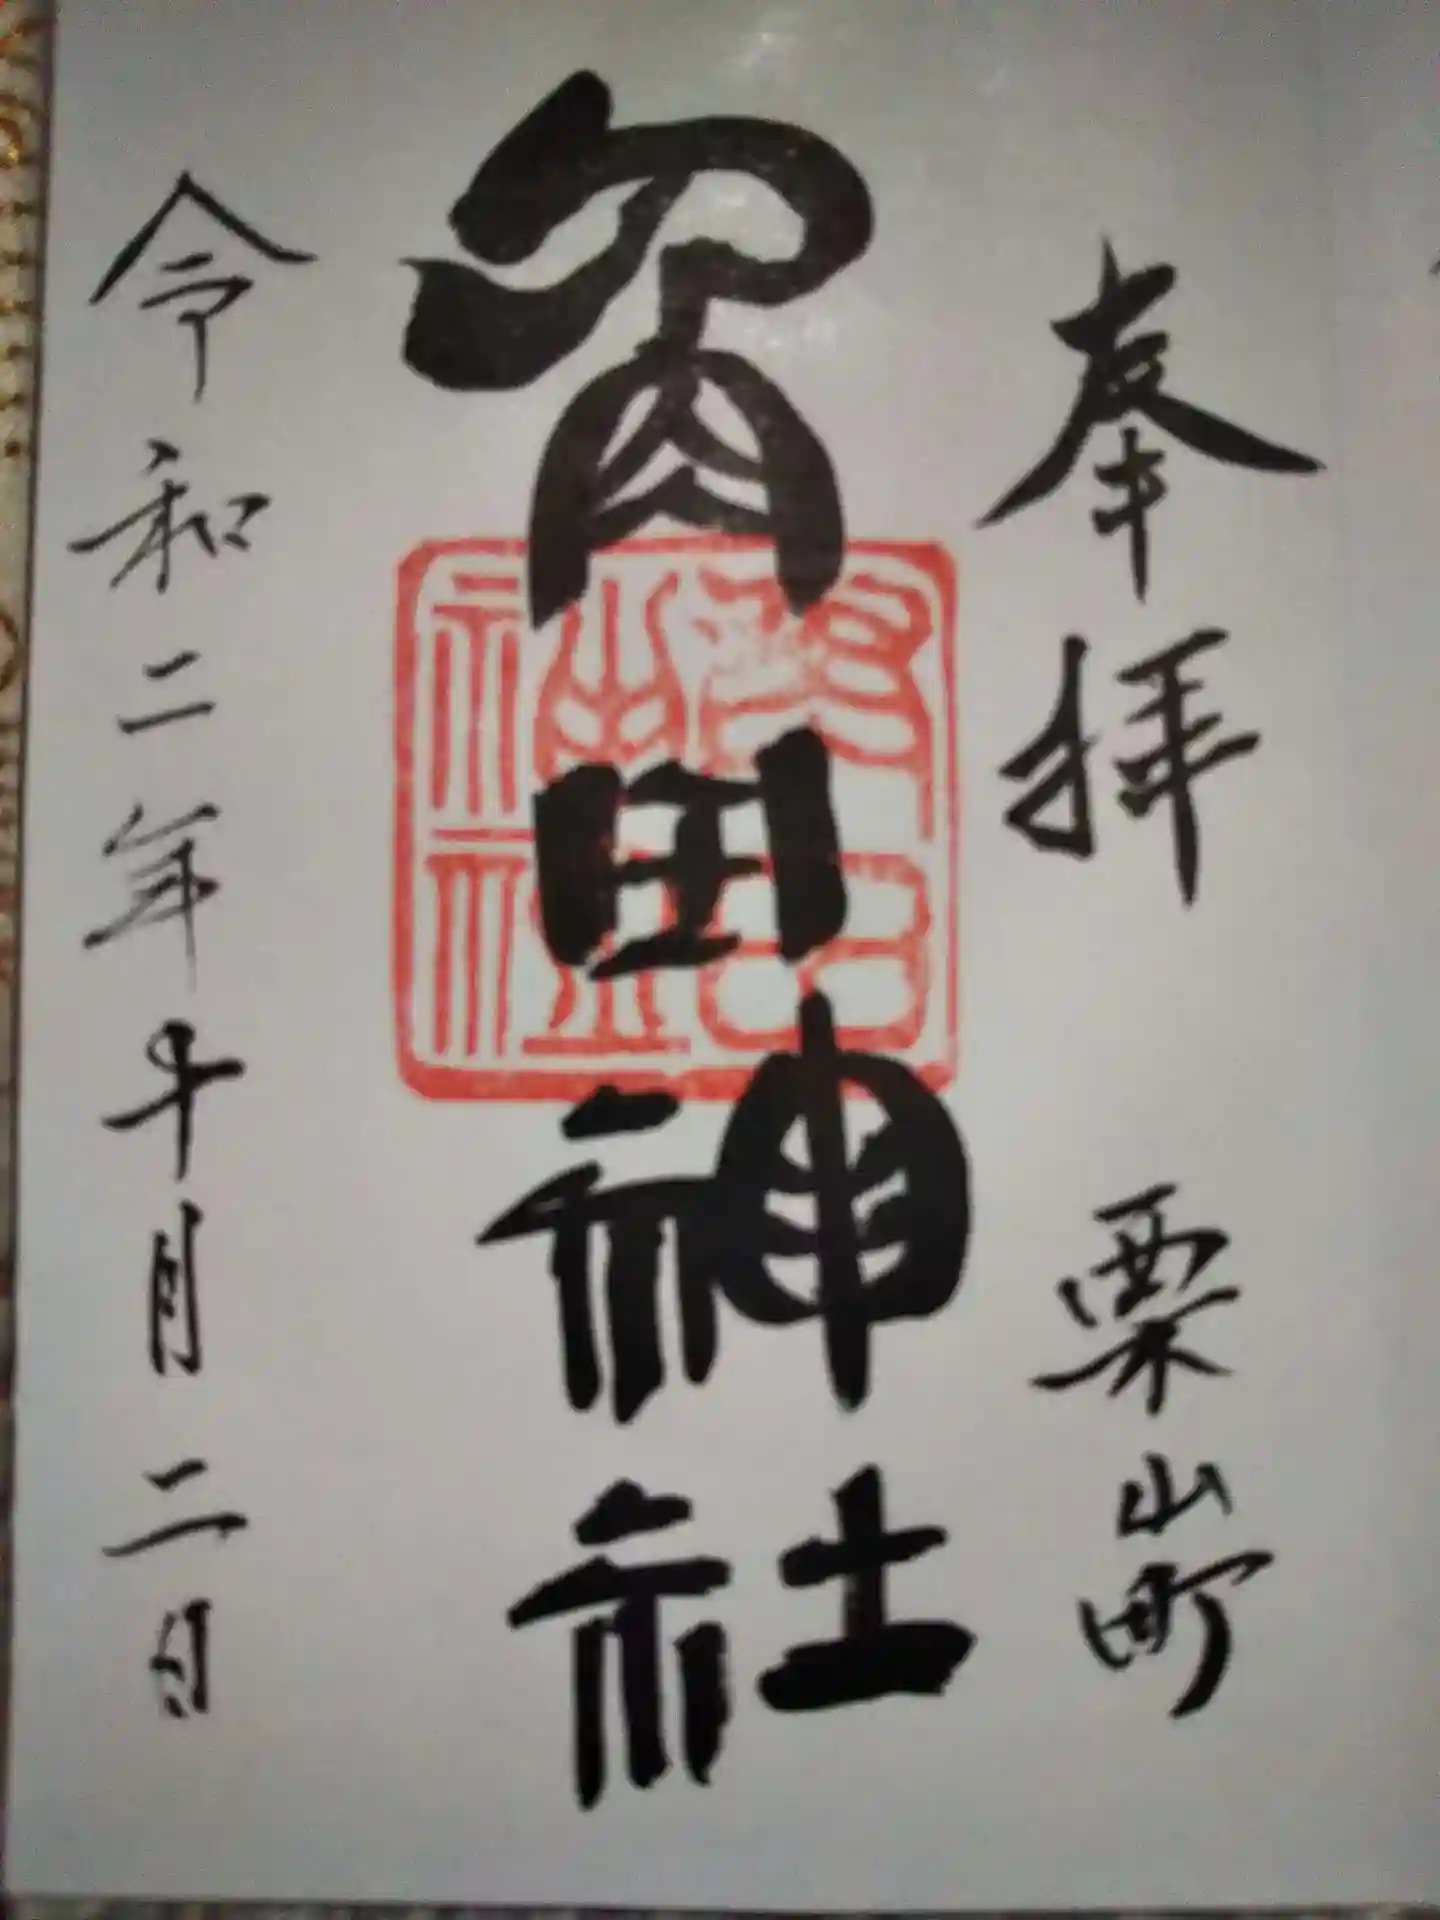 奉拝 栗山町
角田神社
令和二年十月二日